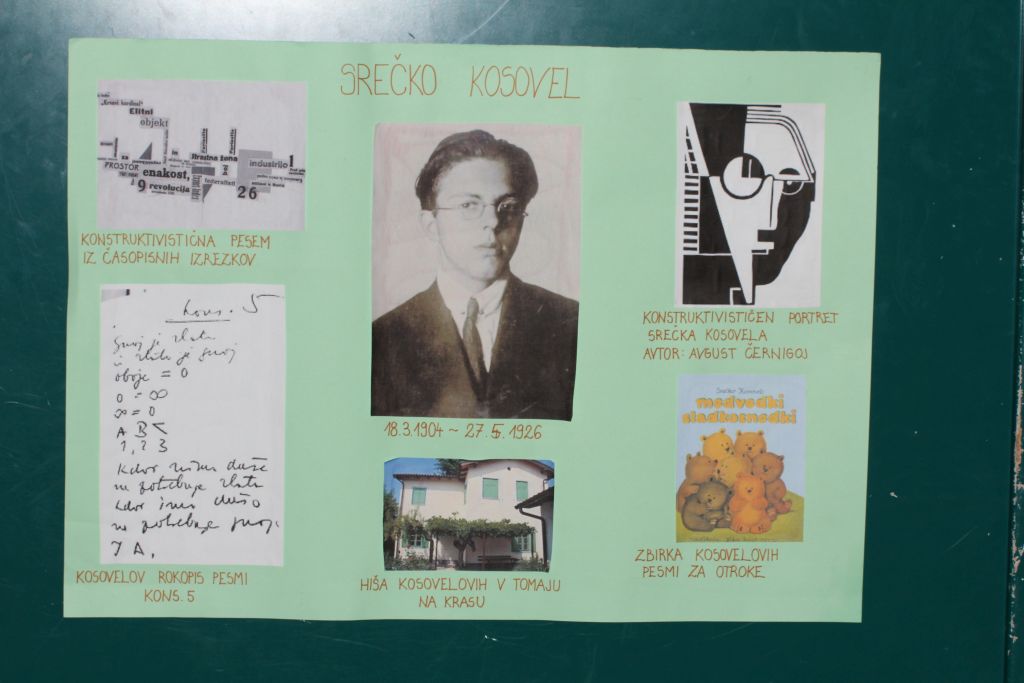 SREČKO KOSOVEL
"Kroast kardinal"
Elitni
objekt
Strastna žena
industrijo 1
PROSTOR
enakost,
federalisti
9 revolucija
26
KONSTRUKTIVISTIČNA PESEM
IZ ČASOPISNIH IZREZKOV
Kons. 5
Gnoj je zlato
in zlato je gnoj
oboje = 0
0 = ∞
∞ = 0
A B <
1, 2, 3
Kdor nima duše
ne potrebuje zlata
kdor ima dušo
ne potrebuje gnoja
I A,
KOSOVELOV ROKOPIS PESMI
KONS. 5
18.3.1904 ~ 27.5.1926
HIŠA KOSOVELOVIH V TOMAJU
NA KRASU
KONSTRUKTIVISTIČEN PORTRET
SREČKA KOSOVELA
AVTOR: AVGUST ČERNIGOJ
Srečko Kosovel
medvedki
sladkosnedki
ZBIRKA KOSOVELOVIH
PESMI ZA OTROKE